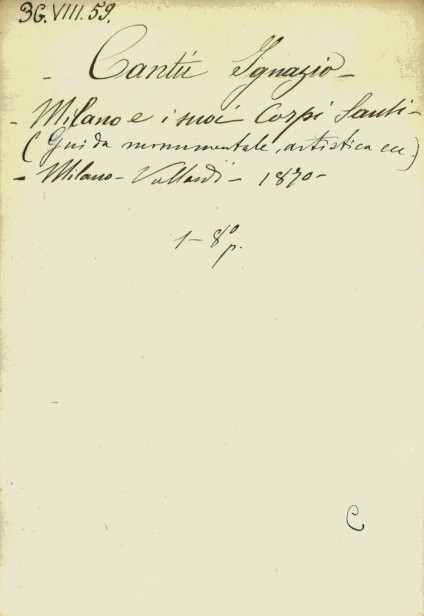 3G.VIII.59.
- Cantù Ignazio -
- Milano e i suoi Corpi Santi -
(Guida monumentale, artistica ecc.)
- Milano - Vallardi - 1870 -
1 - 8º p.
C